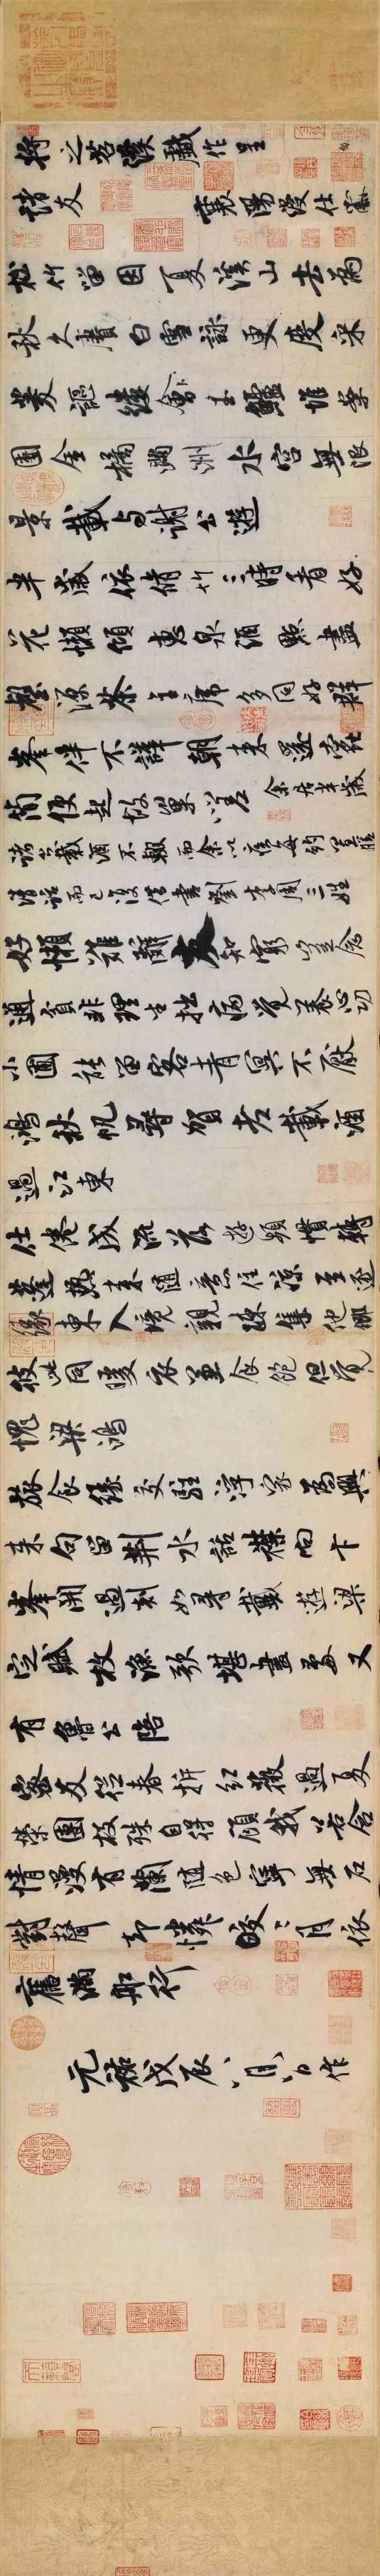 將之苕溪戲作呈
諸友 襄陽漫仕黻
松竹留因夏溪山去為
秋久賡白雪詠更度采
菱謳縷會玉鱸堆案
團金橘滿洲水宮無限
景載與謝公遊
半歲依脩竹三時看好
花懶傾惠泉酒點盡
壑源茶主席多同好群
峯伴不譁朝來還蠹
簡便起故巢嗟 余居半歲
諸公載酒不輟而余以疾每約置膳
清話而已復借書劉李周三姓
好懶難辭友知窮豈念
通貧非理生拙病覺養心功
小圃能留客青冥不厭
鴻秋帆尋賀老載酒
過江東
仕倦成流落遊頻慣轉
蓬熱來隨意住涼至逐
緣東入境親疎集他鄉
彼此同暖衣兼食飽但覺
愧梁鴻
旅食緣交駐浮家為興
來句留荊水話襟向卞
峯開過剡如尋戴遊梁
定賦枚漁歌堪畫處又
有魯公陪
密友從春拆紅薇過夏
榮團枝殊自得顧我若含
情漫有蘭隨色寧無石
對聲却憐皎〻月依
舊滿船行
元祐戊辰八月八日作